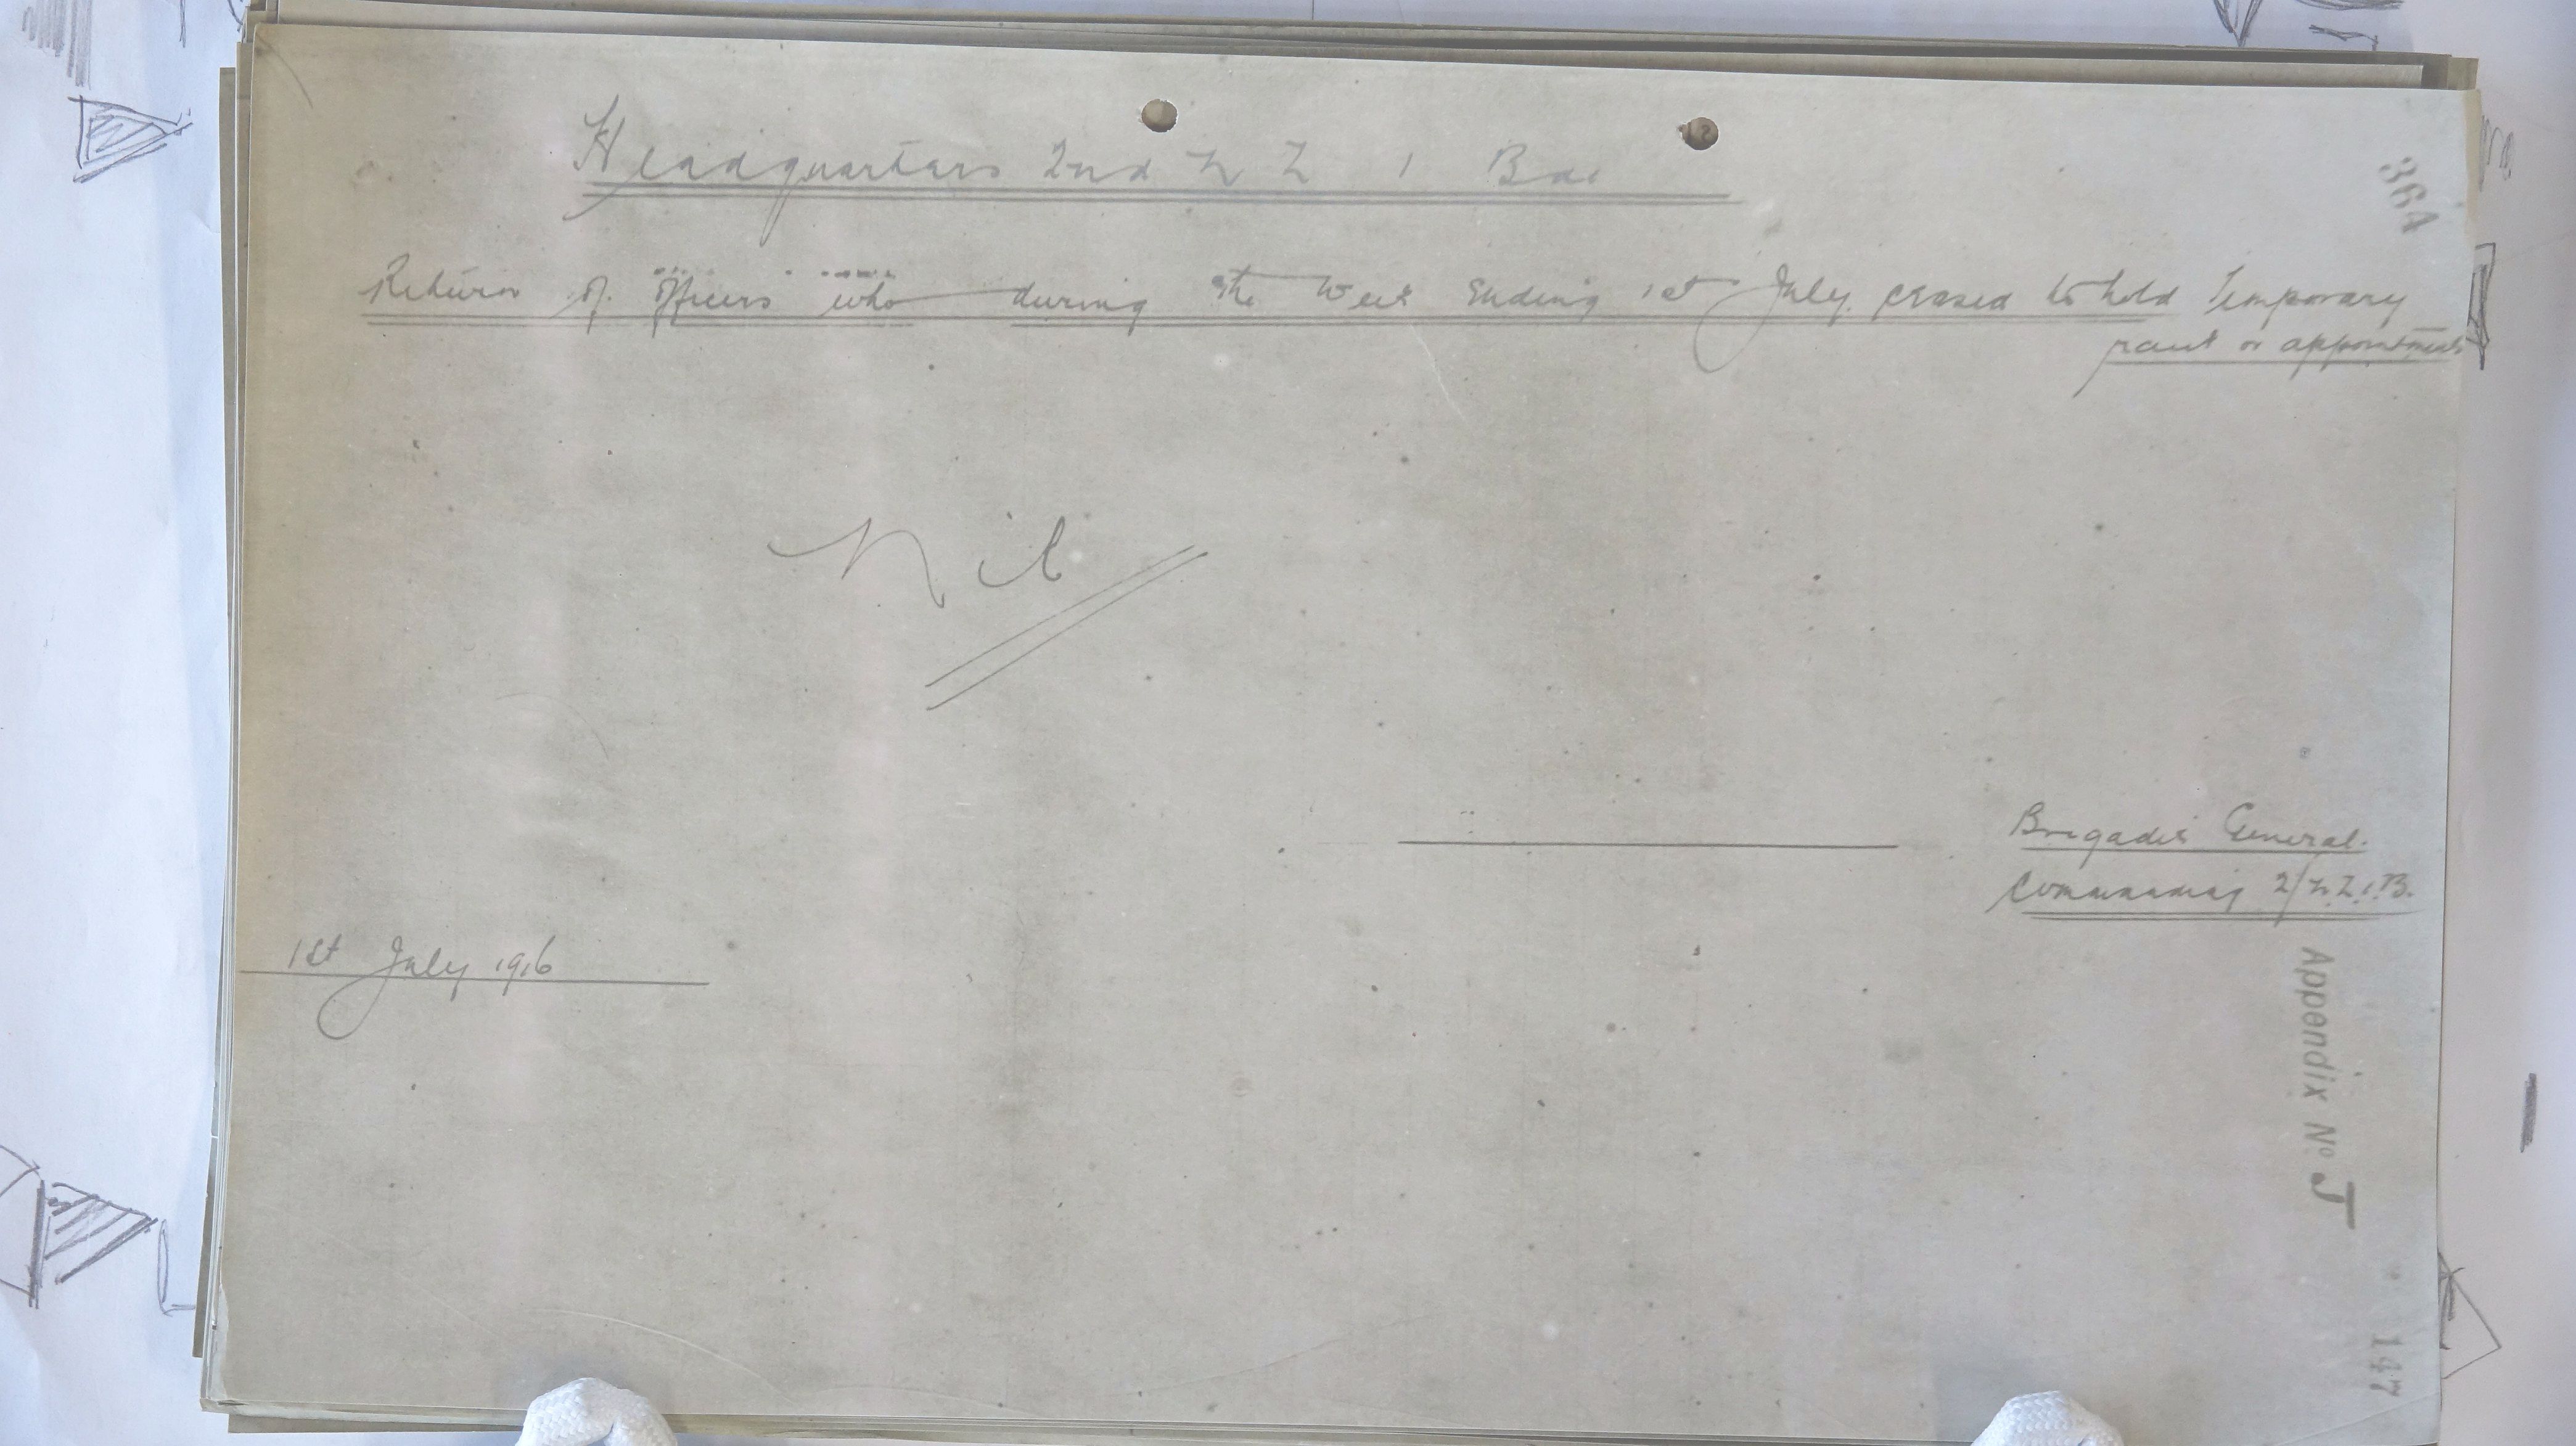 Headquarters 2nd N Z I Bde
364
Return of Officers who during the Week Ending 1st July ceased to hold Temporary
rank or appointments
Nil
Brigadier General.
Commanding 2/N.Z.I.B.
1st July 1916
Appendix No J
147